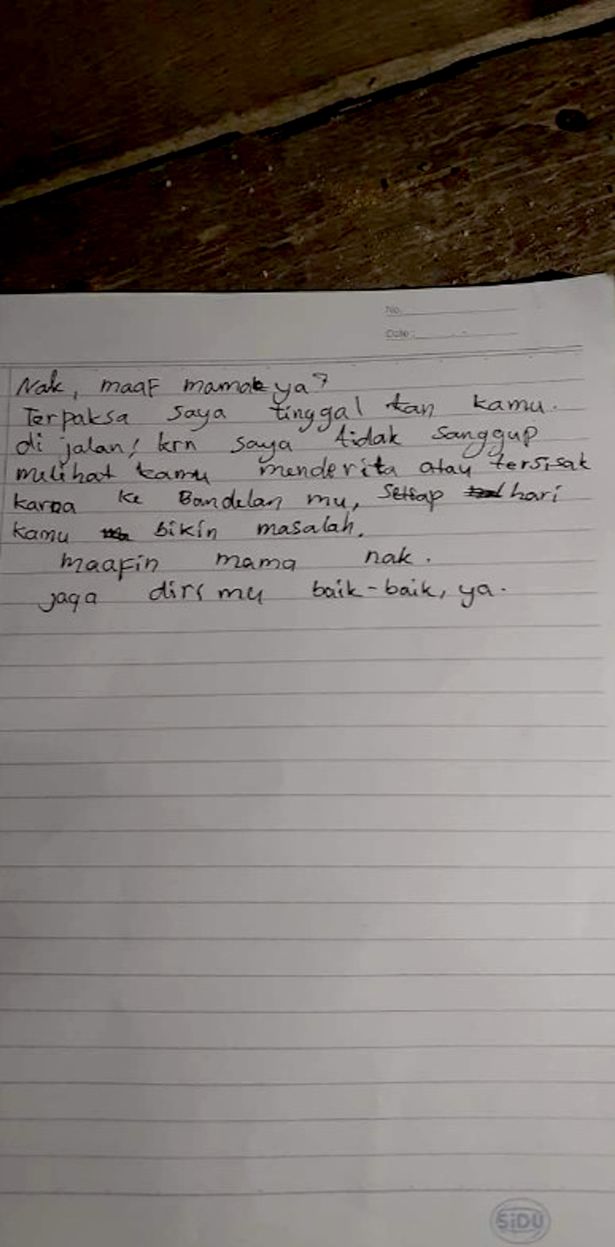 No.
Date:
Nak, maaf mamak ya?
Terpaksa saya tinggal kan kamu.
di jalan, krn saya tidak sanggup
mulihat kamu menderita atau tersisak
karna ke Bandelan mu, setiap hari
kamu bikin masalah.
maafin mama nak.
jaga diri mu baik-baik, ya.
SiDU